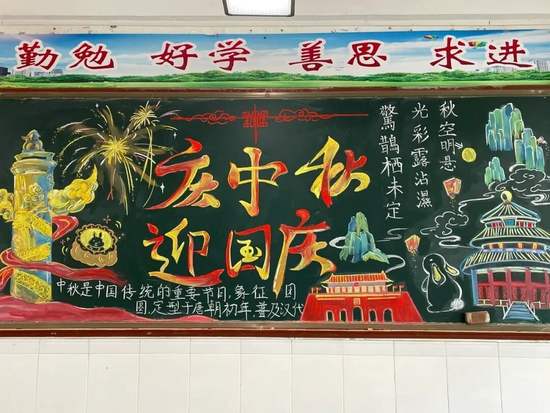 勤勉 好学 善思 求进
庆中秋
迎国庆
秋空明悬
光彩露沾濕
驚鵲栖未定
中秋是中国传统的重要节日,象征团
圆,定型于唐朝初年,普及汉代